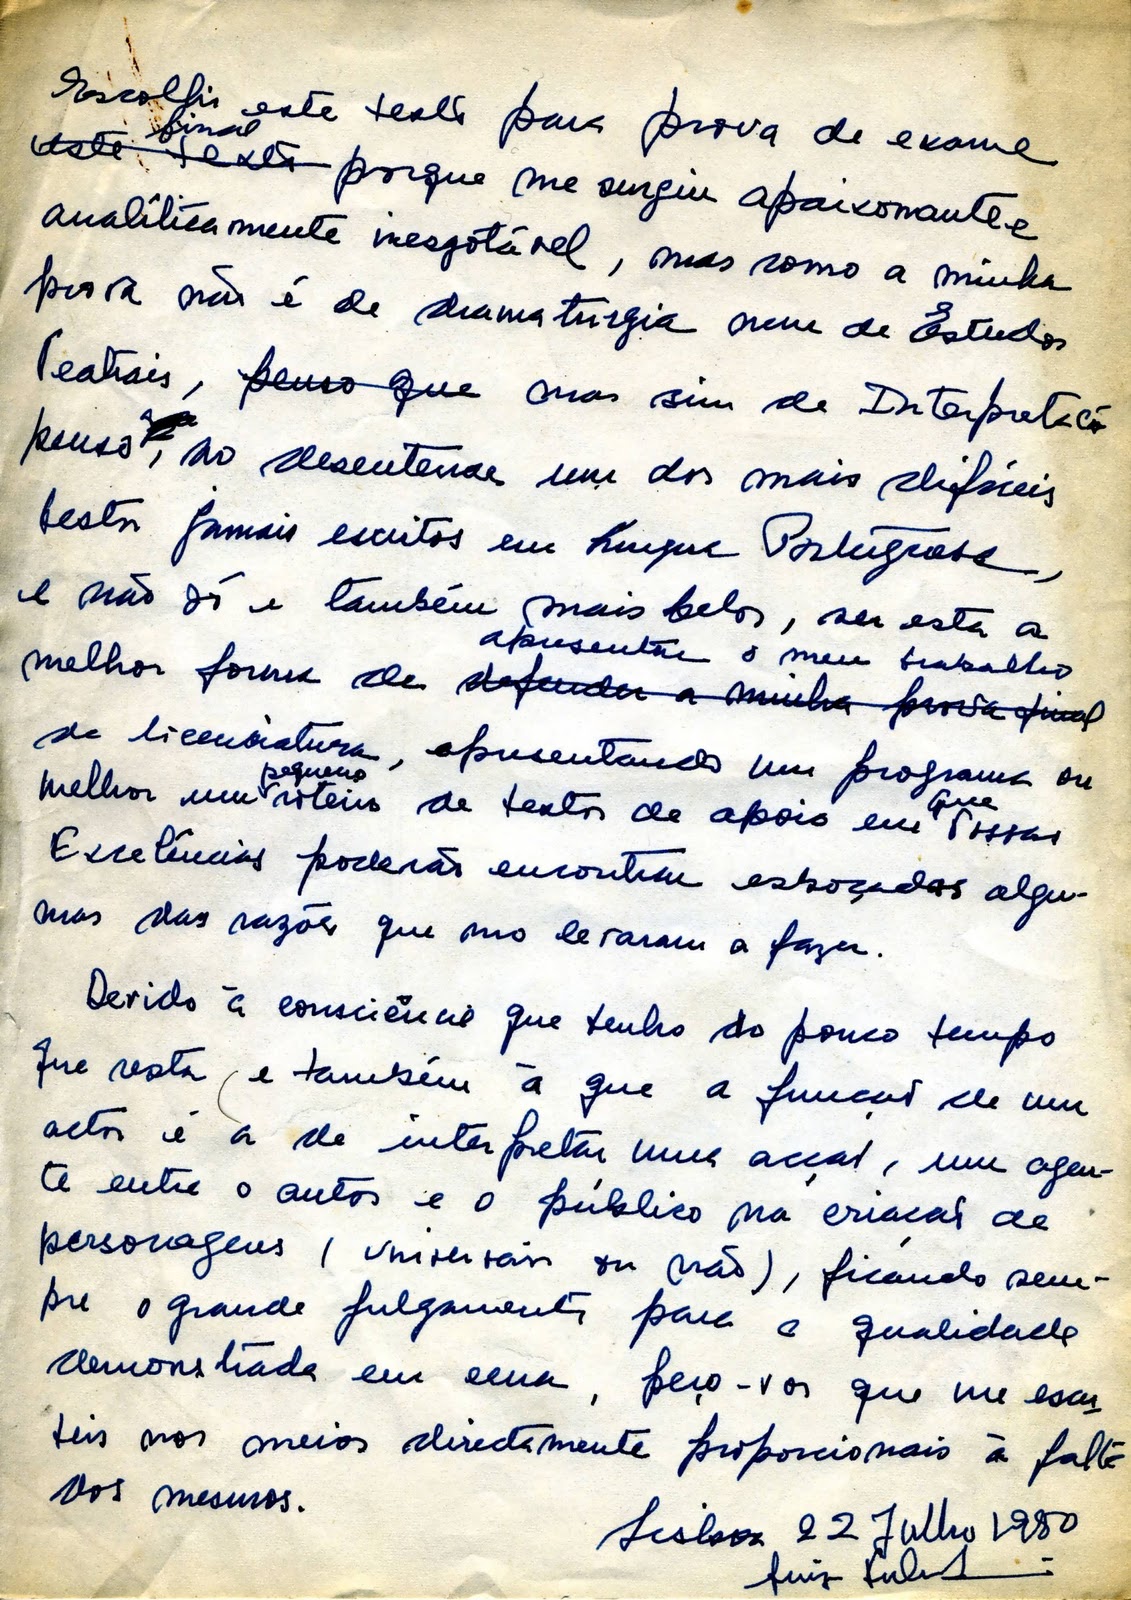 Escolhi este texto para prova de exame
final
este texto porque me surgiu apaixonante e
analiticamente inesgotável, mas como a minha
prova não é de dramaturgia nem de Estudos
Teatrais, penso que mas sim de Interpretação
penso, ao desentender um dos mais difíceis
textos jamais escritos em língua Portuguesa,
e não só e também mais belos, ser esta a
apresentar o meu trabalho
melhor forma de defender a minha prova final
de licenciatura, apresentando um programa ou
pequeno
melhor um roteiro de textos de apoio em que Vossas
Excelências poderão encontrar esboçadas algu-
mas das razões que mo levaram a fazer.
Devido à consciência que tenho do pouco tempo
que resta, e também à que a função de um
actor é a de interpretar uma acção, um agen-
te entre o autor e o público na criação de
personagens (universais ou não), ficando sem-
pre o grande julgamento para a qualidade
demonstrada em cena, peço-vos que me escu-
teis nos meios directamente proporcionais à falta
dos mesmos.
Lisboa 22 Julho 1980
Luis